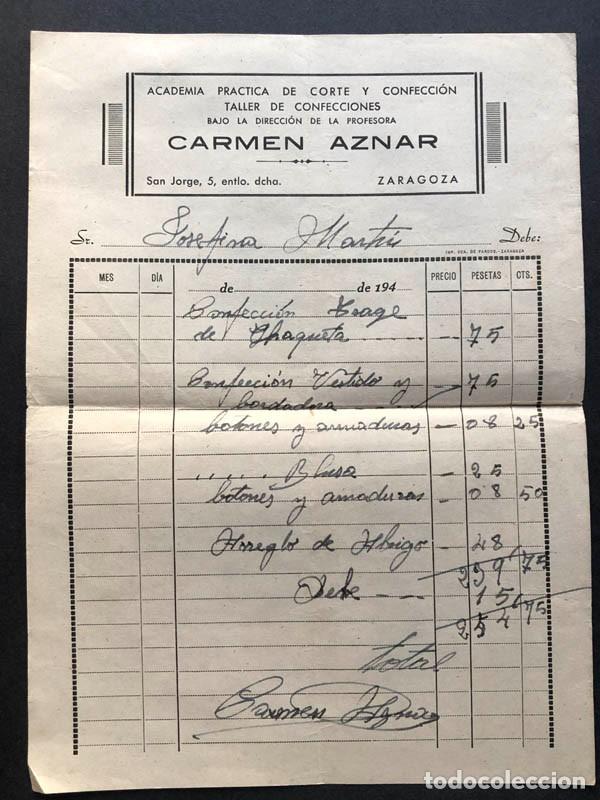 ACADEMIA PRACTICA DE CORTE Y CONFECCIÓN
TALLER DE CONFECCIONES
BAJO LA DIRECCIÓN DE LA PROFESORA
CARMEN AZNAR
San Jorge, 5, entlo. dcha. ZARAGOZA
Sr. Josefina Martín Debe:
IMP. VDA. DE PARDOS.-ZARAGOZA
MES DÍA de de 194 PRECIO PESETAS CTS.
Confección Trage
de Chaqueta — 75
Confección Vestido y — 75
bordadora
botones y armaduras — 08 25
" " " Blusa — 25
botones y armaduras — 08 50
Arreglo de Abrigo — 48
239 75
Debe — 15
254 75
total
Carmen Aznar
todocoleccion.net